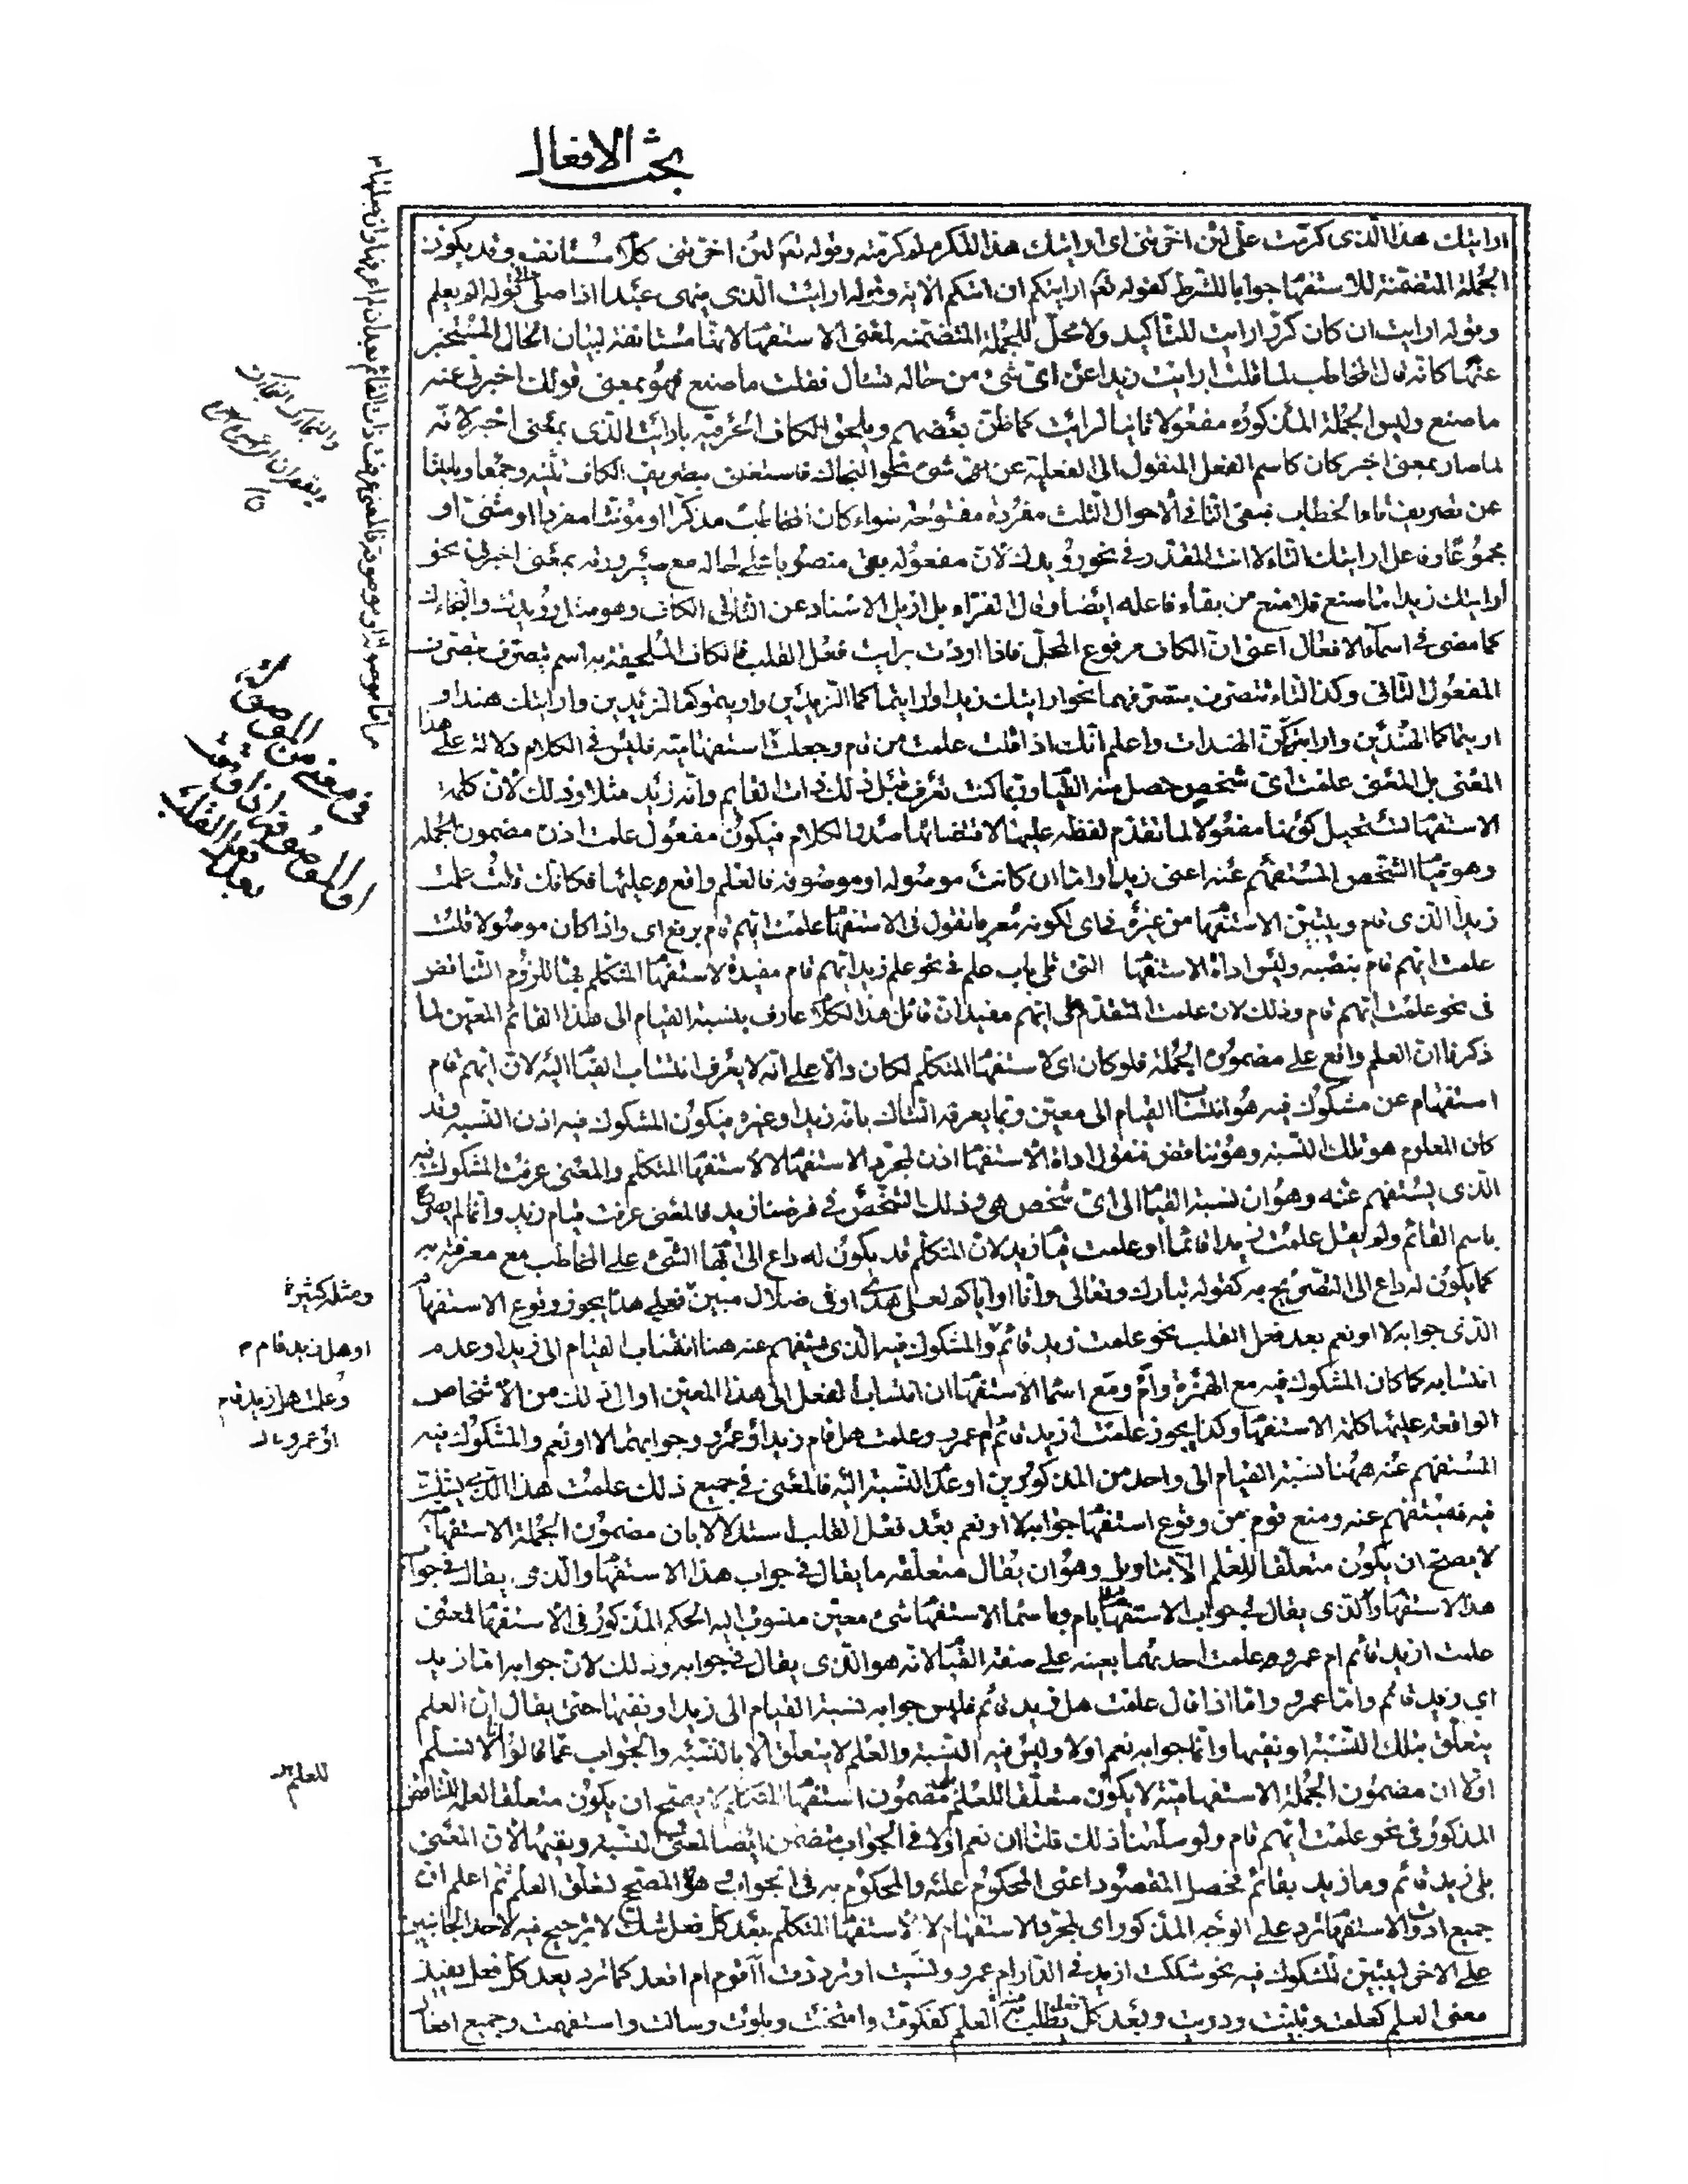 بحث الافعال
ارايتك هذا الذى كرمت على لئن اخرتنى اى ارايتك هذا المكرم لم كرمته وقوله تعم لئن اخرتنى كلام مستانف وقد يكون
الجملة المتضمنة للاستفهام جوابا للشرط كقوله تعم ارايتكم ان اتيكم الاية وقوله ارايت الذى ينهى عبدا اذا صلى قوله الم يعلم
وقوله ارايت ان كان كرر ارايت للتأكيد ولا محل للجملة المتضمنة لمعنى الاستفهام لانها مستانفة لبيان الحال المستخبر
عنها كانه قال المخاطب لما قلت ارايت زيدا عن اى شئ من حاله تسئال فقلت ما صنع فهو بمعنى قولك اخبرنى عنه
ما صنع وليس الجملة المذكورة مفعولا ثانيا لرايت كما ظن بعضهم ويلحق الكاف الحرفية بارايت الذى بمعنى اخبر لانه
لما صار بمعنى اخبر كان كاسم الفعل المنقول الى الفعلية عن شئ نحو النجاك فاستغنى بتصريف الكاف تثنية وجمعا وتانيثا
عن تصريف تاء الخطاب فبقى التاء فى الاحوال الثلث مفردة مفتوحة سواء كان المخاطب مذكرا او مؤنثا مفردا او مثنى او
مجموعا وفاعل ارايتك التاء لا انت المقدر فى نحو رويدك لان مفعوله بقى منصوبا على حاله مع صيرورته بمعنى اخبرنى نحو
أرايتك زيدا ما صنع فلا منع من بقاء فاعله ايضا وقال الفراء بل ازيل الاسناد عن التاء الى الكاف وهو مثل رويدك والنجاءك
كما مضى فى اسماء الافعال اعنى ان الكاف مرفوع المحل فاذا اردت برايت فعل القلب فالكاف الملحقة به اسم يتصرف بتصرف
المفعول الثانى وكذا التاء تتصرف بتصرفهما نحو ارايتك زيدا وارايتماكما الزيدين وارايتموكم الزيدين وارايتك هندا و
اريتماكما الهندين وارايتنكن الهندات واعلم انك اذا قلت علمت من قام وجعلت استفهامية فليس فى الكلام دلالة على هذا
المعنى بل المعنى علمت اى شخص حصل منه القيام وربما كنت تعرف قبل ذلك ذات القايم وانه زيد مثلا وذلك لان كلمة
الاستفهام تستحيل كونها مفعولا لما تقدم لفظه عليها لاقتضائها صدر الكلام فيكون مفعول علمت اذن مضمون الجملة
وهو قيام الشخص المستفهم عنه اعنى زيدا واما ان كانت موصولة او موصوفة فالعلم واقع عليها فكانك قلت علمت
زيدا الذى قام ويتبين الاستفهام من غيره فى اى لكونه معربا تقول فى الاستفهام علمت ايهم قام برفع اى واذا كان موصولا قلت
علمت ايهم قام بنصبه وليس اداة الاستفهام التى تلى باب علم فى نحو علم زيد ايهم قام مفيدة لاستفهام المتكلم بها للزوم التناقض
فى نحو علمت ايهم قام وذلك لان علمت المتقدم على ايهم مفيد ان قائل هذا الكلام عارف بنسبة القيام الى هذا القائم المعين لما
ذكرنا ان العلم واقع على مضمون الجملة فلو كان اى لاستفهام المتكلم لكان دالا على انه لا يعرف انتساب القيام اليه لان ايهم قام
استفهام عن مشكوك فيه هو انتساب القيام الى معين ربما يعرفه الشاك بانه زيد او غيره فيكون المشكوك فيه اذن النسبة وقد
كان المعلوم هو تلك النسبة وهو تناقض فنقول اداة الاستفهام اذن لمجرد الاستفهام لا لاستفهام المتكلم والمعنى عرفت المشكوك فيه
الذى يستفهم عنه وهو ان نسبة القيام الى اى شخص هى وذلك الشخص فى فرضنا زيد فالمعنى عرفت قيام زيد وانما لم يصرح
باسم القائم ولم يقل علمت زيدا قائما او علمت قيام زيد لان المتكلم قد يكون له داع الى ابهام الشئ على المخاطب مع معرفته به
كما يكون له داع الى التصريح به كقوله تبارك وتعالى وانا او اياكم لعلى هدى او فى ضلال مبين فعلى هذا يجوز وقوع الاستفهام
الذى جوابه لا او نعم بعد فعل القلب نحو علمت زيد قائم والمشكوك فيه الذى يستفهم عنه هنا انتساب القيام الى زيد او عدم
انتسابه كما كان المشكوك فيه مع الهمزة وام ومع اسماء الاستفهام ان انتساب الفعل الى هذا المعين او الى ذلك من الاشخاص
الواقعة عليها كلمة الاستفهام وكذا يجوز علمت ازيد قائم ام عمرو وعلمت هل قام زيد او عمرو وجوابهما لا او نعم والمشكوك فيه
المستفهم عنه ههنا نسبة القيام الى واحد من المذكورين او عدم النسبة اليه فالمعنى فى جميع ذلك علمت هذا الذى يشك
فيه فيستفهم عنه ومنع قوم من وقوع استفهام جوابه لا او نعم بعد فعل القلب استدلالا بان مضمون الجملة الاستفهامية
لا يصح ان يكون متعلقا للعلم الا بتاويل وهو ان يقال متعلقه ما يقال فى جواب هذا الاستفهام والذى يقال فى جواب
هذا الاستفهام والذى يقال فى جواب الاستفهام بام وباسماء الاستفهام شئ معين منسوب اليه الحكم المذكور فى الاستفهام فمعنى
علمت ازيد قائم ام عمرو علمت احدهما بعينه على صفة القيام لانه هو الذى يقال فى جوابه وذلك لان جوابه اما زيد
اى زيد قائم واما عمرو واما اذا قال علمت هل زيد قائم فليس جوابه نسبة القيام الى زيد او نفيها حتى يقال ان العلم
يتعلق بتلك النسبة او نفيها وانما جوابه نعم او لا وليس فيه النسبة والعلم لا يتعلق الا بالنسبة والجواب عما قالوا انا لا نسلم
اولا ان مضمون الجملة الاستفهامية لا يكون متعلقا للعلم بل مضمون استفهام المتكلم لا يصح ان يكون متعلقا للعلم للتناقض
المذكور فى نحو علمت ايهم قام ولو سلمنا ذلك قلنا ان نعم او لا فى الجواب متضمن ايضا لمعنى النسبة ونفيها لان المعنى
بلى زيد قائم وما زيد بقائم فحصل المقصود اعنى المحكوم عليه والمحكوم به فى الجواب هو المصحح لتعلق العلم ثم اعلم ان
جميع ادوات الاستفهام ترد على الوجه المذكور اى لمجرد الاستفهام لا لاستفهام المتكلم بعد كل فعل شك لا ترجيح فيه لاحد الجانبين
على الاخر ليتبين المشكوك فيه نحو شككت ازيد فى الدار ام عمرو ونسيت او ترددت أأقوم ام اقعد كما ترد بعد كل فعل يفيد
معنى العلم كعلمت وتبينت ودريت وبعد كل فعل يطلب به العلم كفكرت وامتحنت وبلوت وسالت واستفهمت وجميع افعال
ومثله كثيرة
او هل زيد قام م
وعلمت هل زيد قام
او عمرو
للعلم